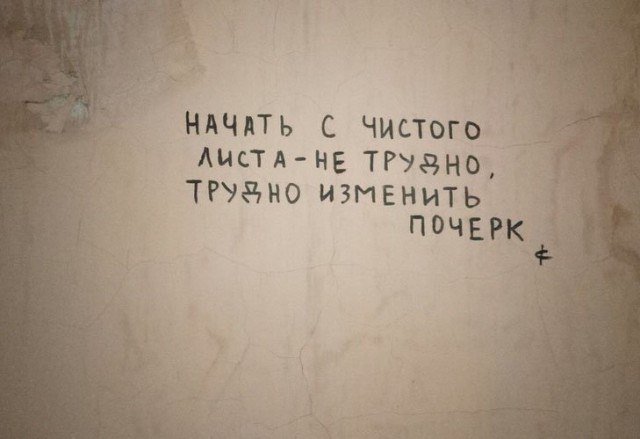 НАЧАТЬ С ЧИСТОГО
ЛИСТА-НЕ ТРУДНО,
ТРУДНО ИЗМЕНИТЬ
ПОЧЕРК